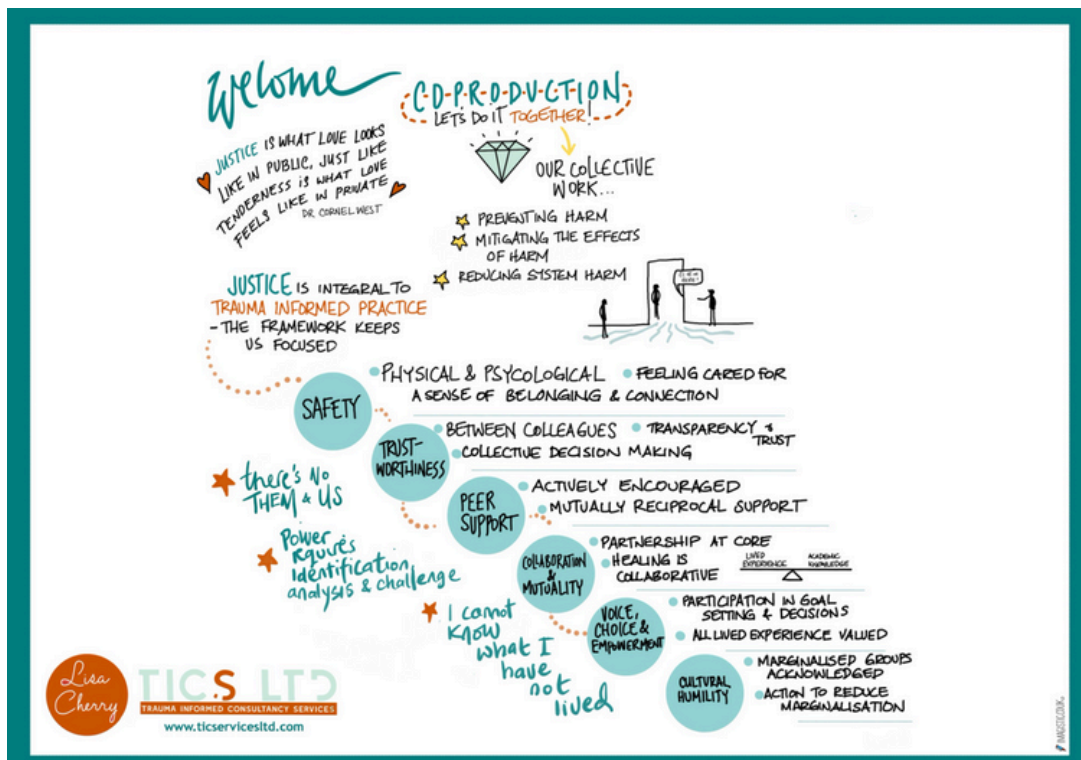 Welcome
CO-PRODUCTION
LET'S DO IT TOGETHER!
JUSTICE IS WHAT LOVE LOOKS
LIKE IN PUBLIC, JUST LIKE
TENDERNESS IS WHAT LOVE
FEELS LIKE IN PRIVATE
DR. CORNEL WEST
OUR COLLECTIVE
WORK...
PREVENTING HARM
MITIGATING THE EFFECTS
OF HARM
REDUCING SYSTEM HARM
JUSTICE IS INTEGRAL TO
TRAUMA INFORMED PRACTICE
- THE FRAMEWORK KEEPS
US FOCUSED
SAFETY
PHYSICAL & PSYCOLOGICAL
FEELING CARED FOR
A SENSE OF BELONGING & CONNECTION
TRUST-
WORTHINESS
BETWEEN COLLEAGUES
TRANSPARENCY &
TRUST
COLLECTIVE DECISION MAKING
there's No
THEM & US
PEER
SUPPORT
ACTIVELY ENCOURAGED
MUTUALLY RECIPROCAL SUPPORT
Power
requires
identification
analysis & challenge
COLLABORATION
&
MUTUALITY
PARTNERSHIP AT CORE
HEALING IS
COLLABORATIVE
LIVED
EXPERIENCE
ACADEMIC
KNOWLEDGE
I cannot
know
what I
have
not
lived
VOICE,
CHOICE &
EMPOWERMENT
PARTICIPATION IN GOAL
SETTING & DECISIONS
ALL LIVED EXPERIENCE VALUED
CULTURAL
HUMILITY
MARGINALISED GROUPS
ACKNOWLEDGED
ACTION TO REDUCE
MARGINALISATION
Lisa
Cherry
TICS LTD
TRAUMA INFORMED CONSULTANCY SERVICES
www.ticservicesltd.com